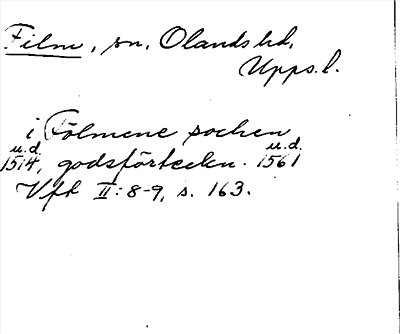 Film, sn, Olands hd,
Upps. l.
i Fölmene sochen
u.d. u.d.
1514, godsförteckn. 1561
Vfk II: 8-9, s. 163.